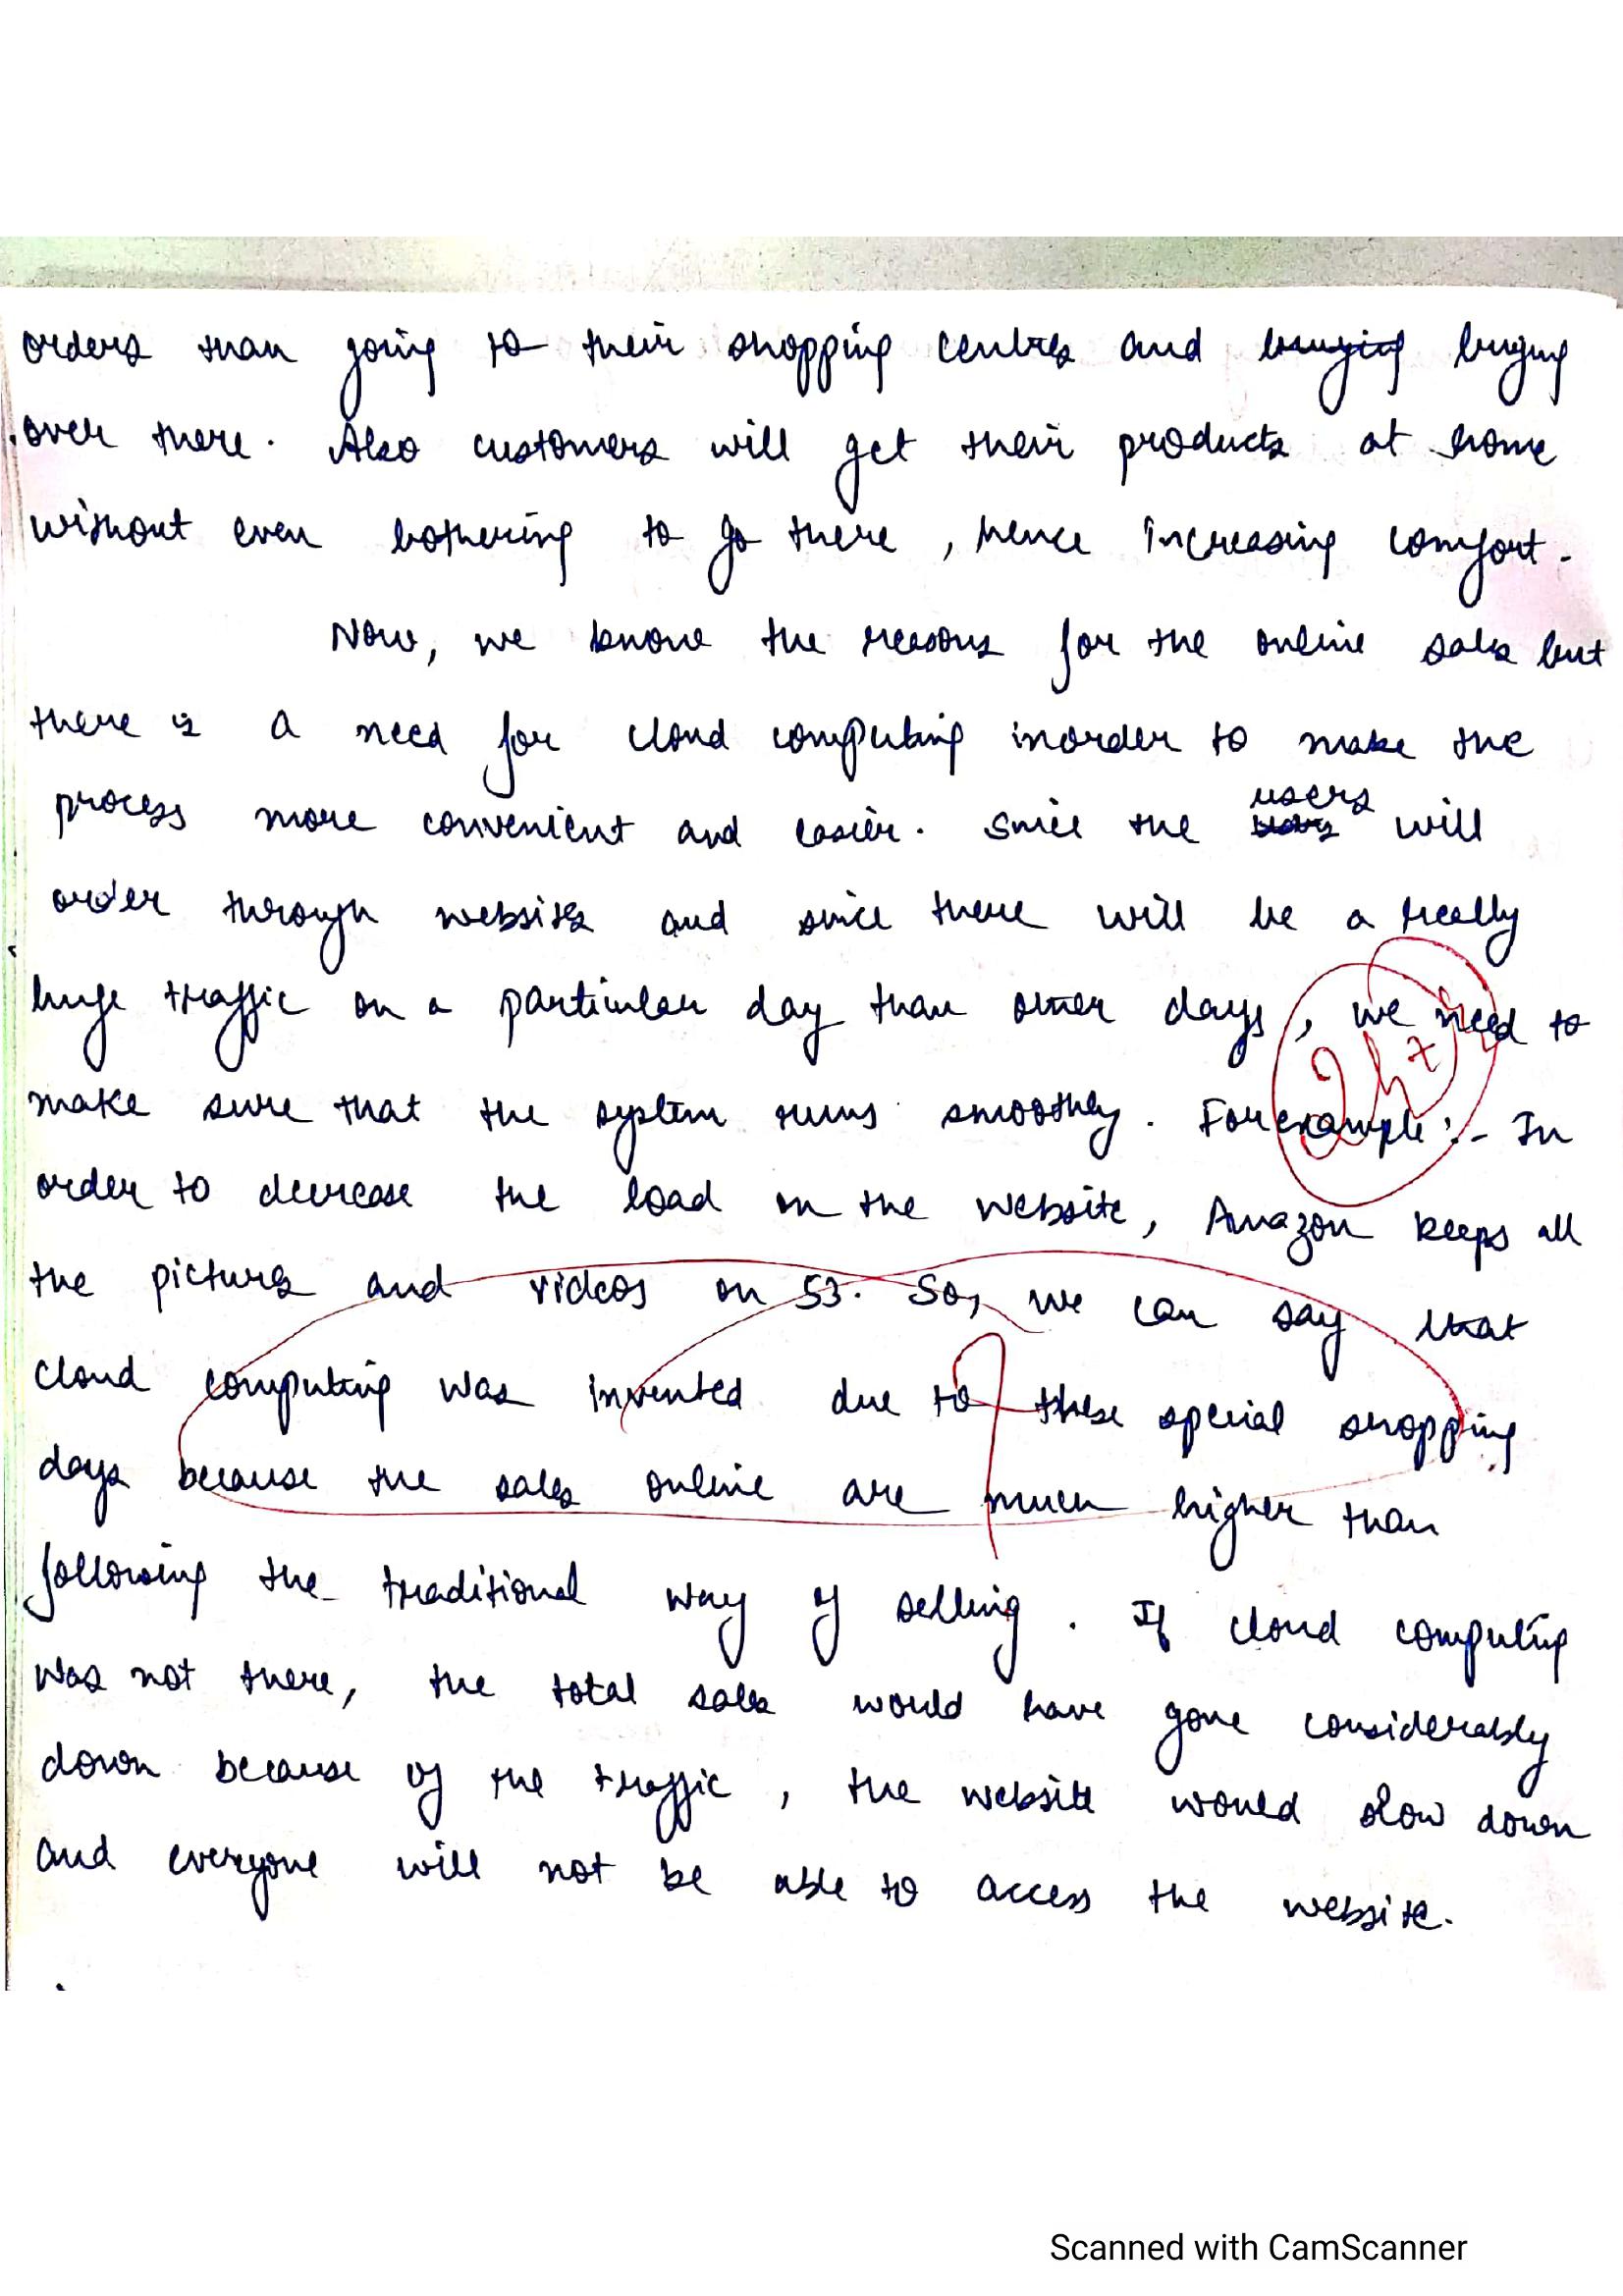 orders than going to their shopping centres and buying buying
over there. Also customers will get their products at home
without even bothering to go there, hence increasing comfort.
Now, we know the reasons for the online sales but
there is a need for cloud computing inorder to make the
process more convenient and easier. Since the users will
order through websites and since there will be a really
huge traffic on a particular day than other days, we need to
make sure that the system runs smoothly. For example :- In
order to decrease the load on the website, Amazon keeps all
the pictures and videos on S3. So, we can say that
cloud computing was invented due to these special shopping
days because the sales online are much higher than
following the traditional way of selling. If cloud computing
was not there, the total sales would have gone considerably
down because of the traffic, the website would slow down
and everyone will not be able to access the website.
Scanned with CamScanner